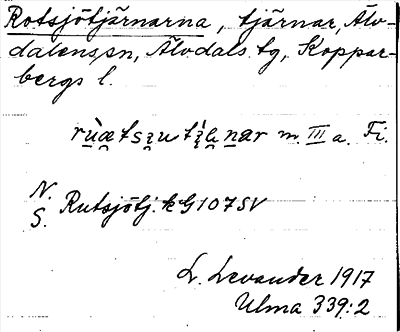 Rotsjötjärnarna, tjärnar, Älv-
dalens sn, Älvdals tg, Koppar-
bergs l.
m. III a. Fi.
N.
S. Rutsjötj. k G 107 SV
L. Levander 1917
Ulma 339:2